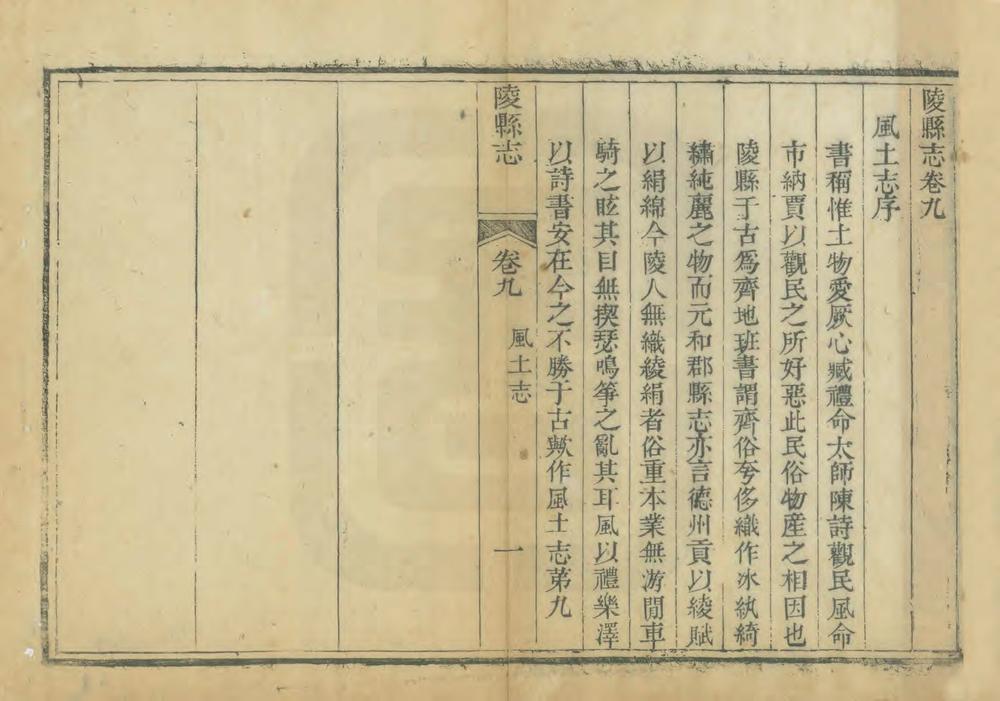 陵縣志卷九
風土志序
書稱惟土物愛厥心臧禮命太師陳詩觀民風命
市納賈以觀民之所好惡此民俗物產之相因也
陵縣于古爲齊地班書謂齊俗夸侈織作氷紈綺
繡純麗之物而元和郡縣志亦言德州貢以綾賦
以絹綿今陵人無織綾絹者俗重本業無游閒車
騎之眩其目無揳瑟鳴箏之亂其耳風以禮樂澤
以詩書安在今之不勝于古歟作風土志第九
陵縣志
卷九
風土志
一